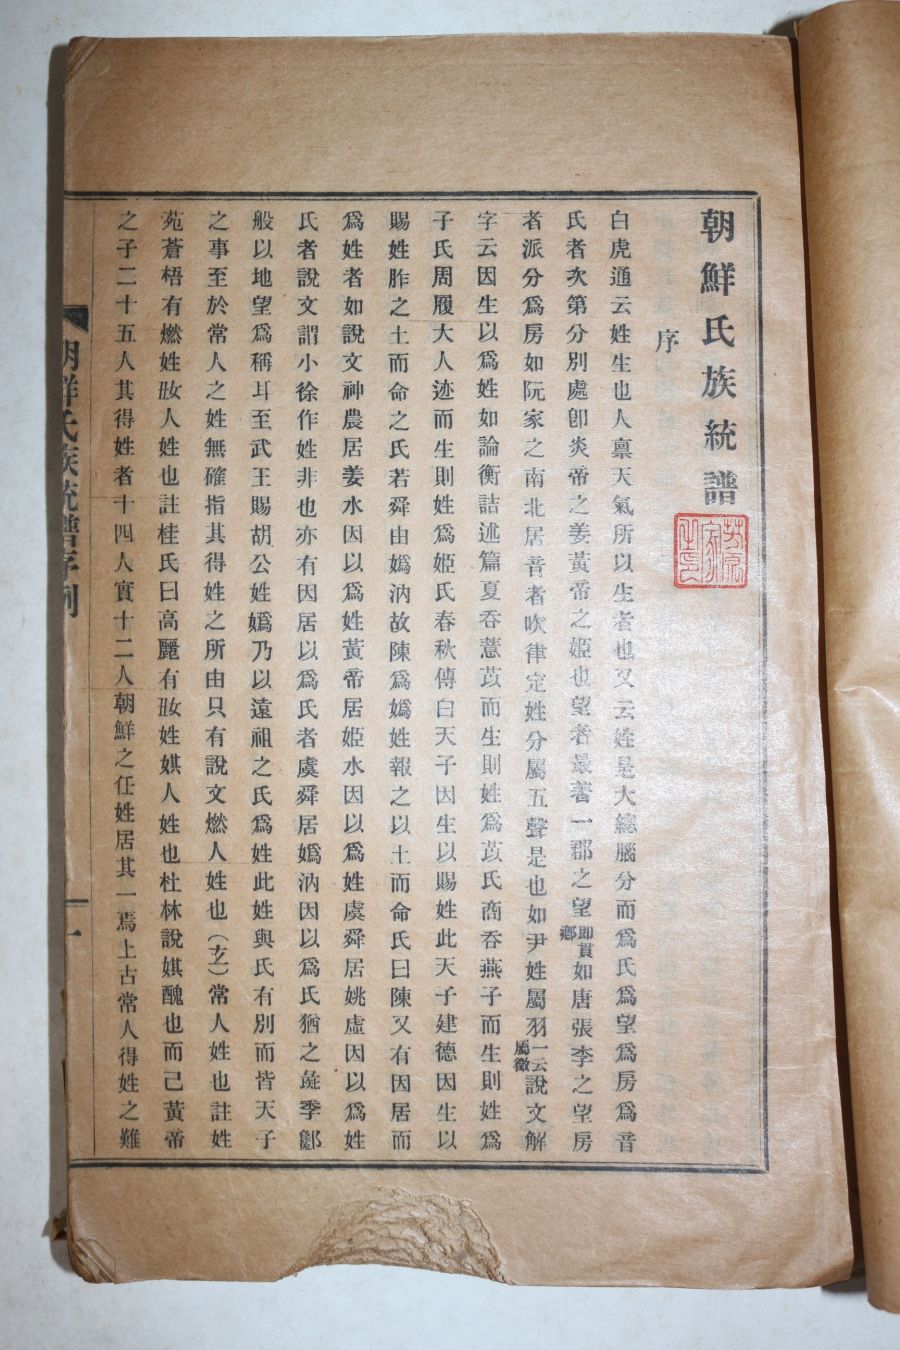 朝鮮氏族統譜
序
白虎通云姓生也人稟天氣所以生者也又云姓是大總腦分而爲氏爲望爲房爲音
氏者次第分別處卽炎帝之姜黃帝之姬也望者最著一郡之望卽貫鄕如唐張李之望房
者派分爲房如阮家之南北居音者吹律定姓分屬五聲是也如尹姓屬羽一云屬徵說文解
字云因生以爲姓如論衡詰述篇夏吞薏苡而生則姓爲苡氏商吞燕子而生則姓爲
子氏周履大人迹而生則姓爲姬氏春秋傳白天子因生以賜姓此天子建德因生以
賜姓胙之土而命之氏若舜由嬀汭故陳爲嬀姓報之以土而命氏曰陳又有因居而
爲姓者如說文神農居姜水因以爲姓黃帝居姬水因以爲姓虞舜居姚虛因以爲姓
氏者說文謂小徐作姓非也亦有因居以爲氏者虞舜居嬀汭因以爲氏猶之㢟季鄭
般以地望爲稱耳至武王賜胡公姓嬀乃以遠祖之氏爲姓此姓與氏有別而皆天子
之事至於常人之姓無確指其得姓之所由只有說文燃人姓也(玄一)常人姓也註姓
苑蒼梧有燃姓㚼人姓也註桂氏曰高麗有㚼姓娸人姓也杜林說娸醜也而己黃帝
之子二十五人其得姓者十四人實十二人朝鮮之任姓居其一焉上古常人得姓之難
朝鮮氏族統譜序例
一